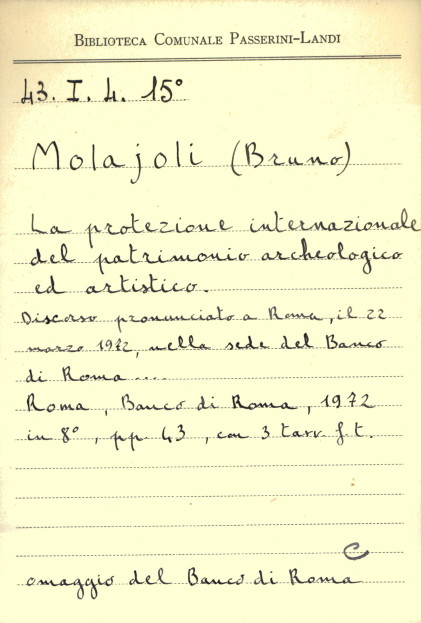 Biblioteca Comunale Passerini-Landi
43. I. 4. 15°
Molajoli (Bruno)
La protezione internazionale
del patrimonio archeologico
ed artistico.
Discorso pronunciato a Roma, il 22
marzo 1972, nella sede del Banco
di Roma....
Roma, Banco di Roma, 1972
in 8°, pp. 43, con 3 tavv. f. t.
C
omaggio del Banco di Roma